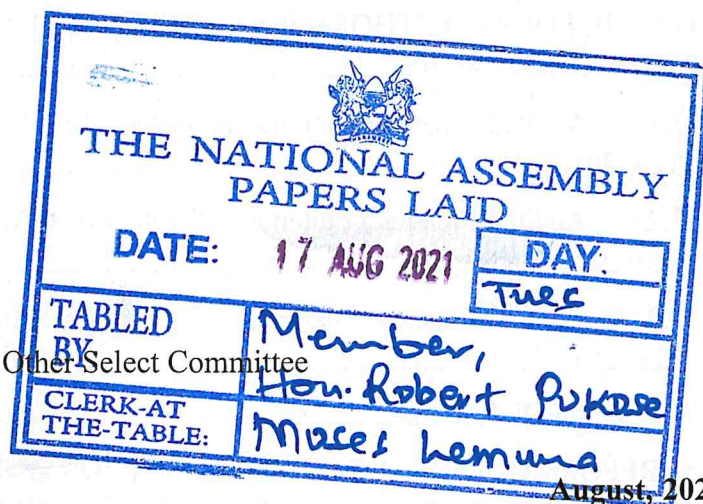 THE NATIONAL ASSEMBLY
PAPERS LAID
DATE: 17 AUG 2021
DAY.
Tues
TABLED BY
Member,
Hon. Robert Pukose
Other Select Committee
CLERK-AT THE-TABLE:
Moses Lemuna
August, 202